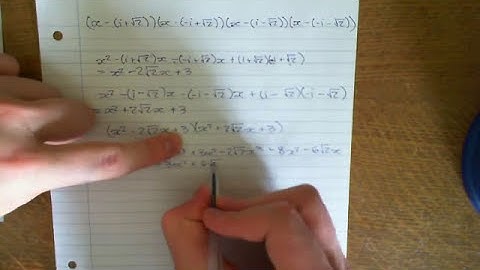 (x-(i+√2))(x-(-i+√2))(x-(i-√2))(x-(-i-√2))
x²-(i+√2)x-(-i+√2)x+(i+√2)(-i+√2)
= x²-2√2x+3
x²-(i-√2)x-(-i-√2)x+(i-√2)(-i-√2)
= x²+2√2x+3
(x²-2√2x+3)(x²+2√2x+3)
+3x²-2√2x³-8x²-6√2x
3x²+6√2